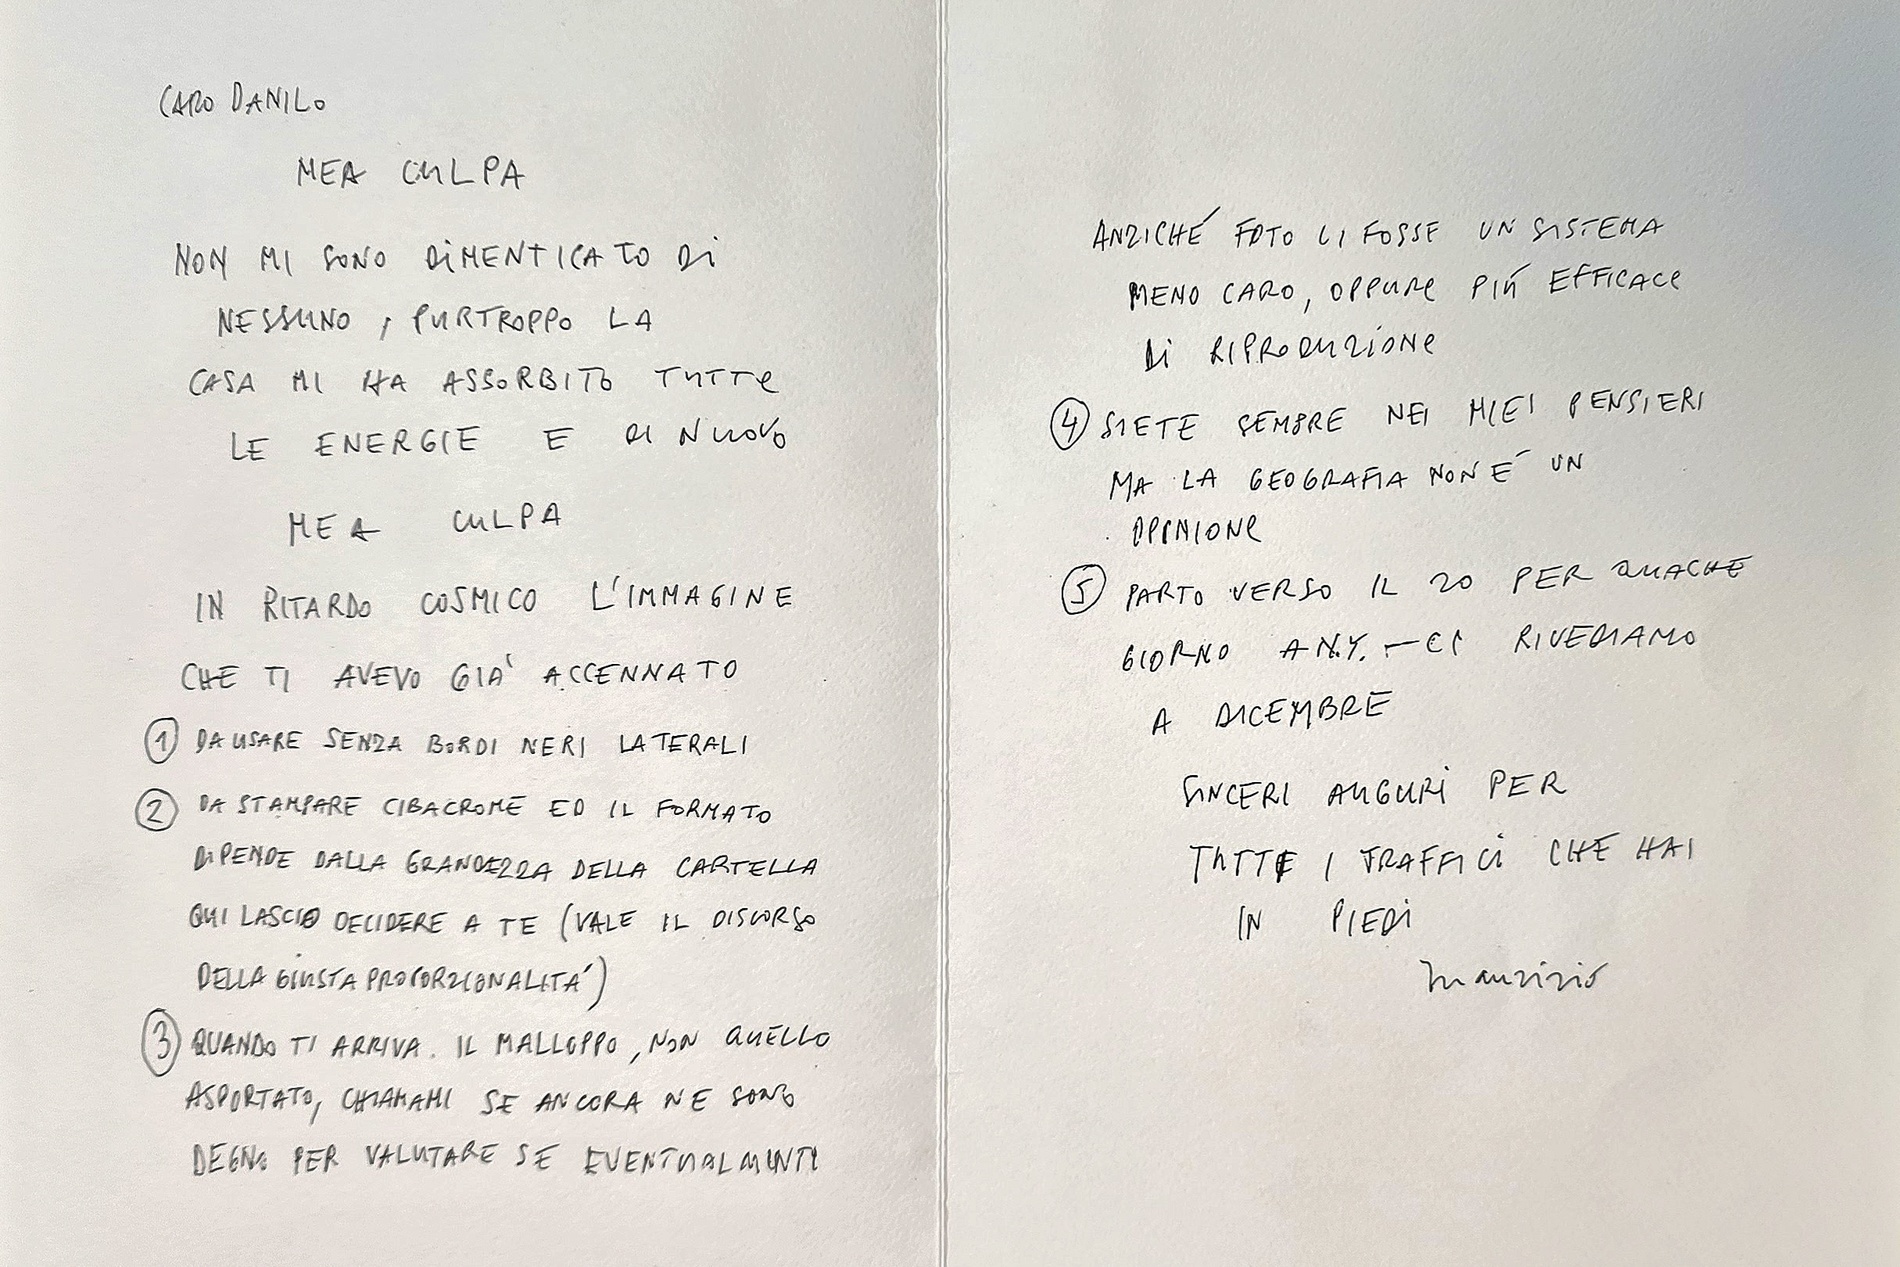 CARO DANILO
MEA CULPA
NON MI SONO DIMENTICATO DI
NESSUNO, PURTROPPO LA
CASA MI HA ASSORBITO TUTTE
LE ENERGIE E DI NUOVO
MEA CULPA
IN RITARDO COSMICO L'IMMAGINE
CHE TI AVEVO GIA' ACCENNATO
① DA USARE SENZA BORDI NERI LATERALI
② DA STAMPARE CIBACROME ED IL FORMATO
DIPENDE DALLA GRANDEZZA DELLA CARTELLA
QUI LASCIO DECIDERE A TE (VALE IL DISCORSO
DELLA GIUSTA PROPORZIONALITA')
③ QUANDO TI ARRIVA. IL MALLOPPO, NON QUELLO
ASPORTATO, CHIAMAMI SE ANCORA NE SONO
DEGNO PER VALUTARE SE EVENTUALMENTE
ANZICHÉ FOTO CI FOSSE UN SISTEMA
MENO CARO, OPPURE PIÚ EFFICACE
DI RIPRODUZIONE
④ SIETE SEMPRE NEI MIEI PENSIERI
MA LA GEOGRAFIA NON E' UN
OPINIONE
⑤ PARTO VERSO IL 20 PER QUACHE
GIORNO A N.Y. — CI RIVEDIAMO
A DICEMBRE
SINCERI AUGURI PER
TUTTI I TRAFFICI CHE HAI
IN PIEDI
Maurizio